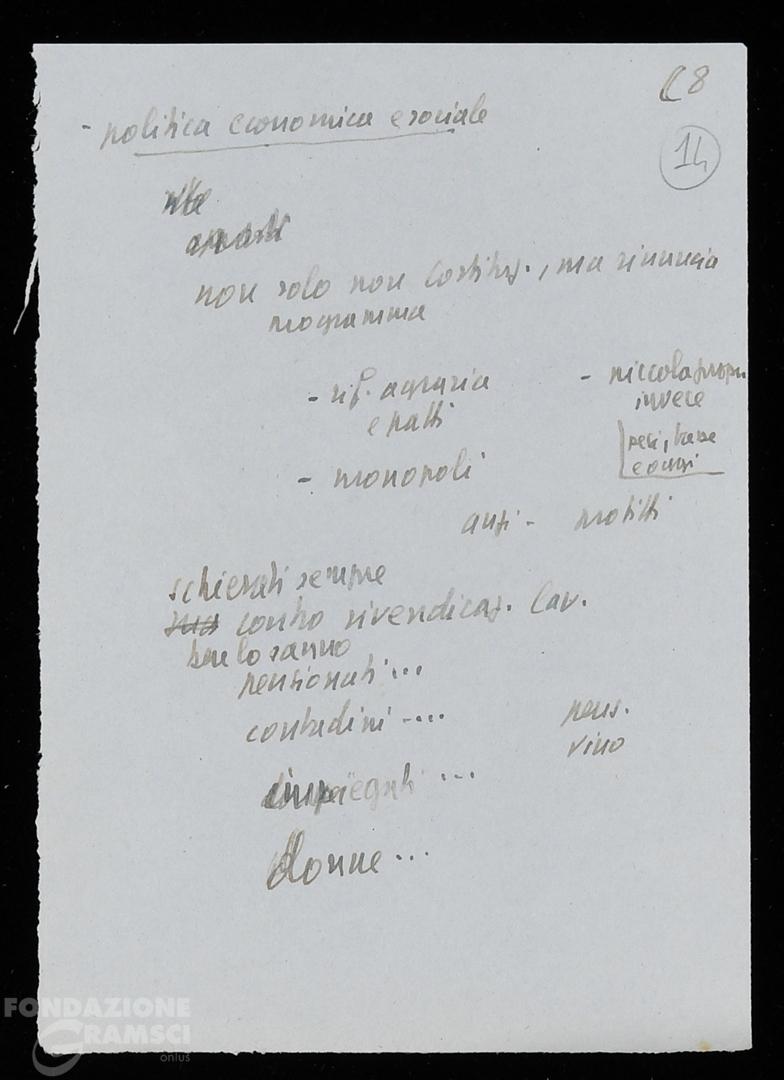 C8
14
- politica economica e sociale
non solo non costituz., ma rinuncia
programma
- rif. agraria
e patti
- piccola propr.
invece
pesi, tasse
e oneri
- monopoli
anzi - profitti
schierati sempre
contro rivendicaz. lav.
ben lo sanno
pensionati ...
contadini - ...
pens.
vino
impiegati ...
donne ...
FONDAZIONE
GRAMSCI
onlus